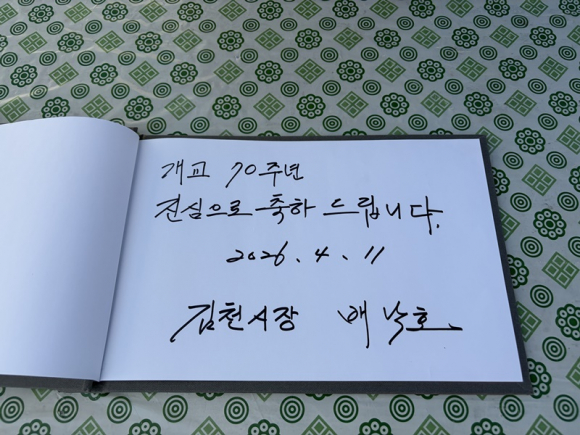 개교 70주년
진심으로 축하 드립니다.
2026. 4. 11
김천시장 배낙호